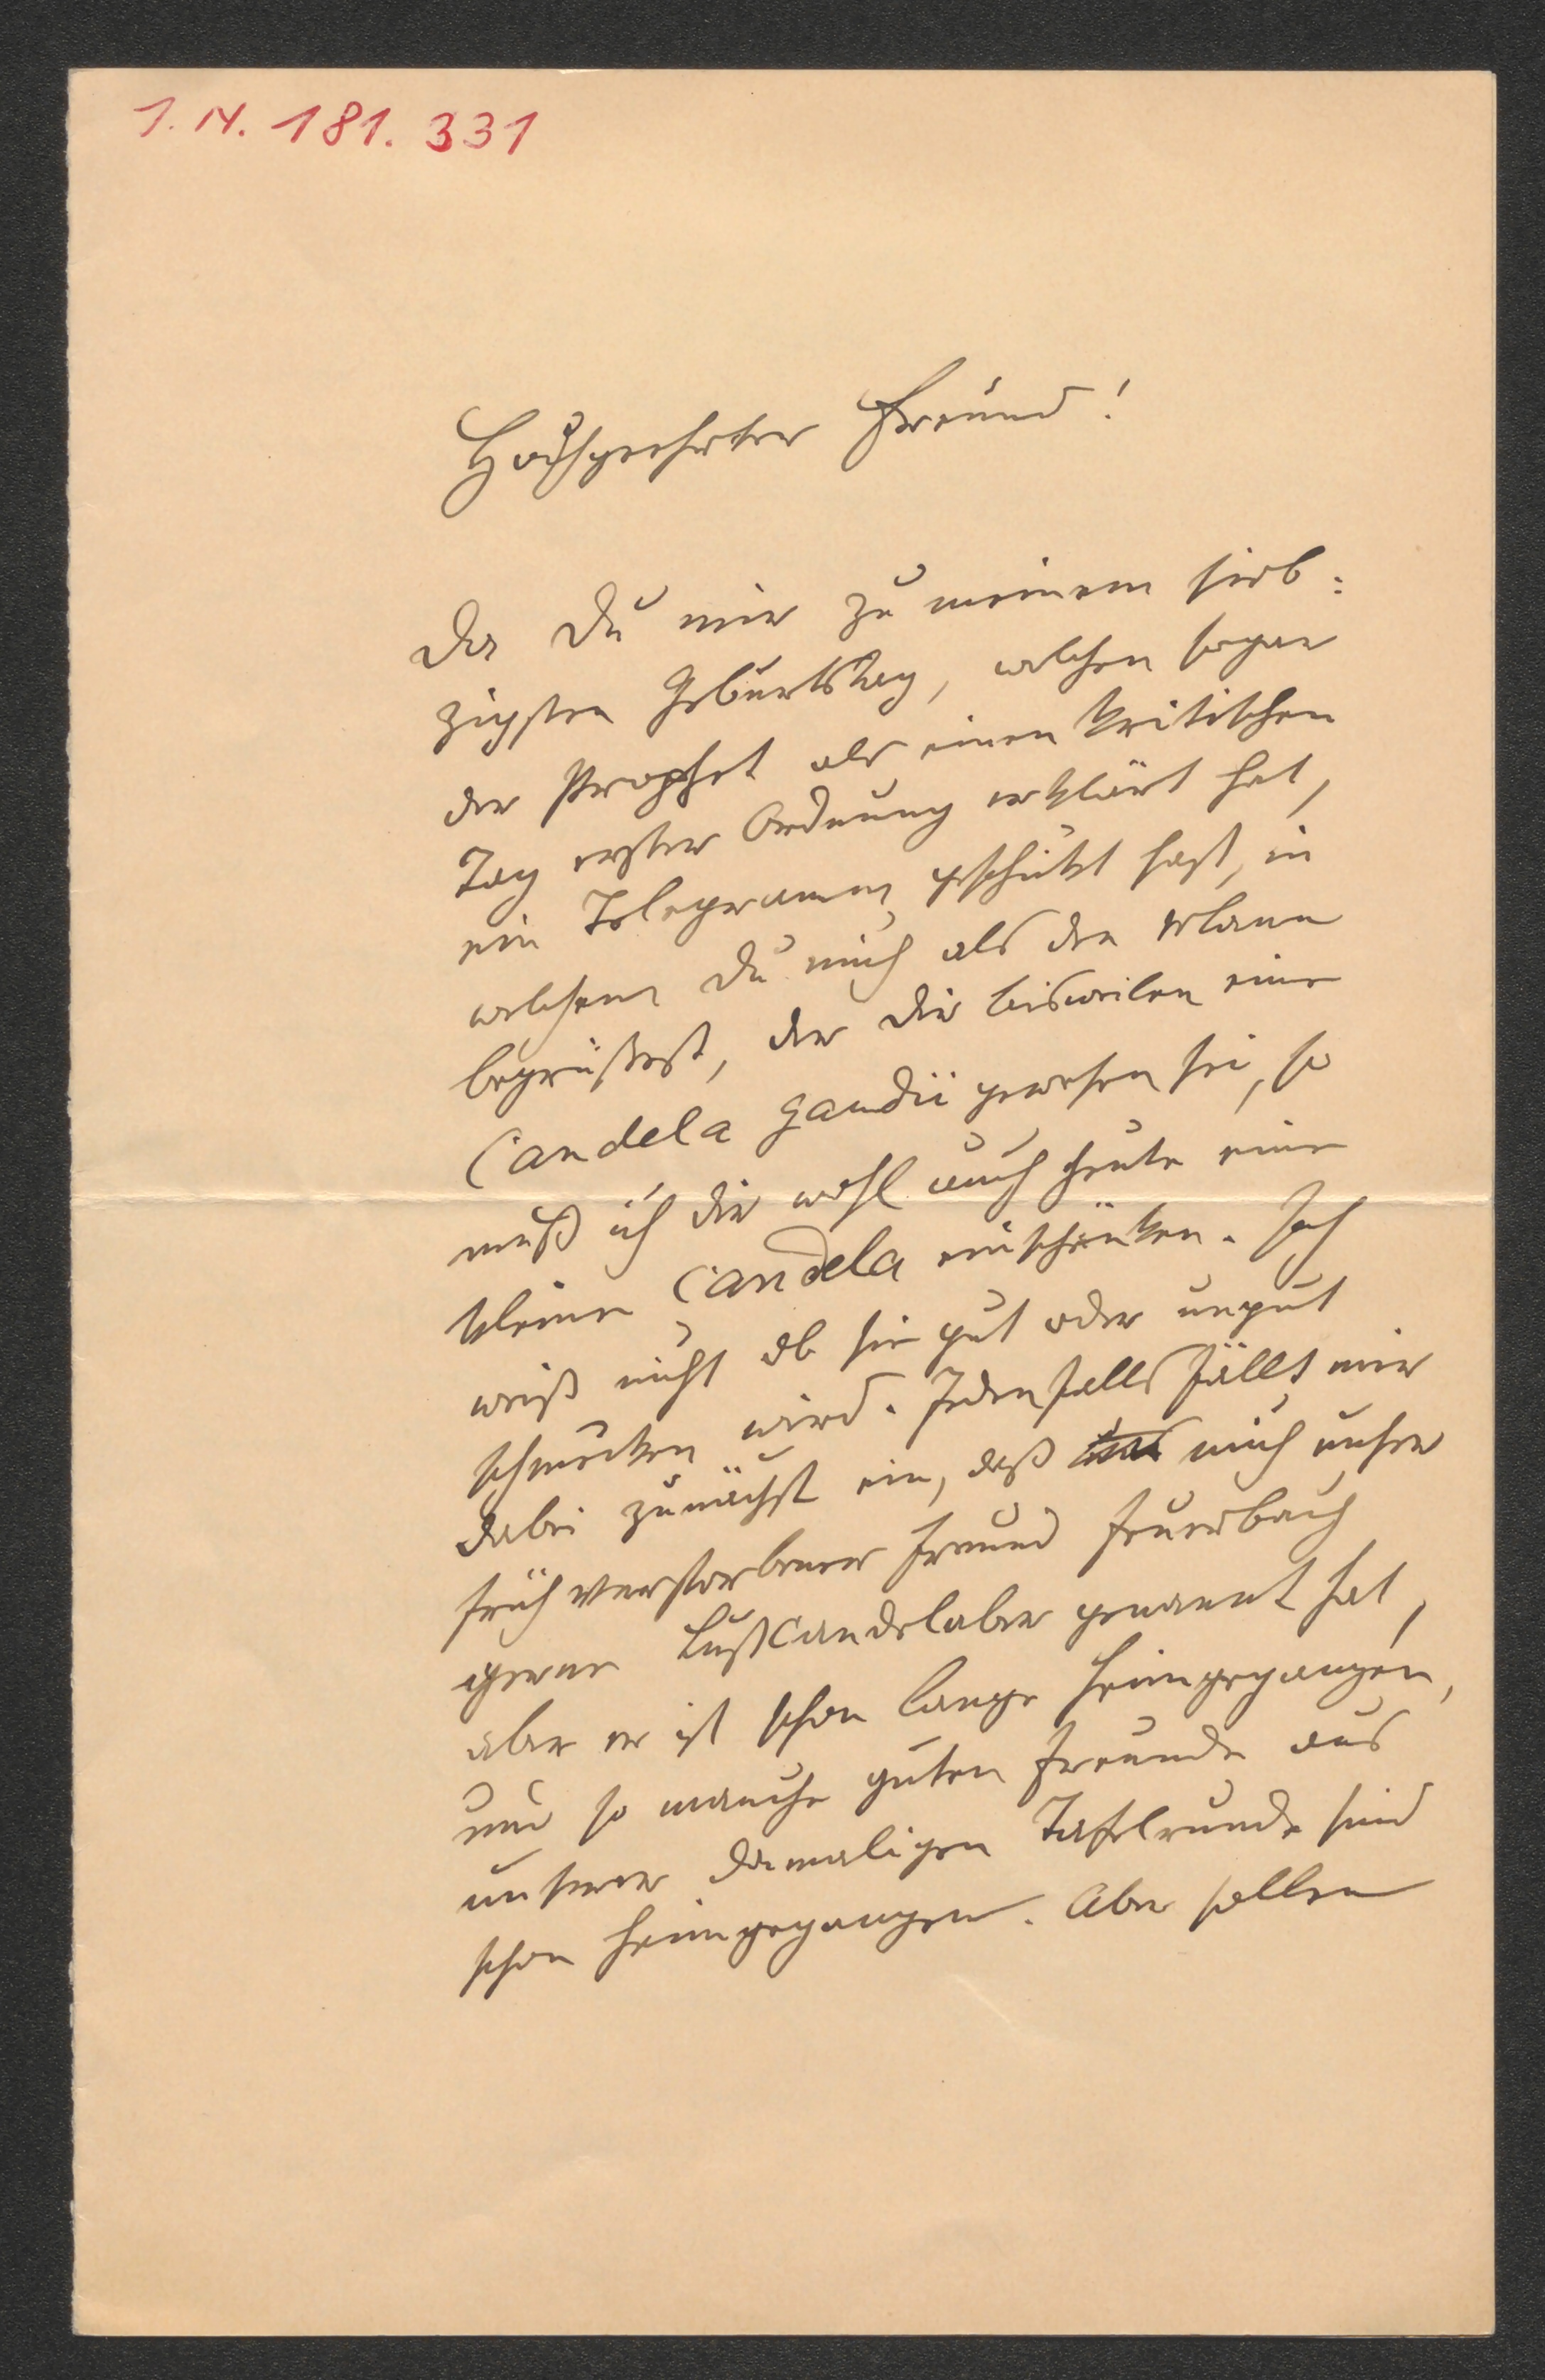 I. N. 181. 331
Hochgeehrter Freund!
Da Du mir zu meinem sieb-
zigsten Geburtstag, welchen sogar
der Prophet als einen kritischen
Tag erster Ordnung erklärt hat,
ein Telegramm geschickt hast, in
welchem Du mich als den Mann
begrüßest, der Dir bisweilen eine
Candela gaudii gewesen sei, so
muß ich Dir wohl auch heute eine
kleine Candela einschänken. Ich
weiß nicht ob sie gut oder ungut
schmecken wird. Jedenfalls fällt mir
dabei zunächst ein, daß mich unser
früh verstorbener Freund Feuerbach
gerne Lustcandelaber genannt hat,
aber er ist schon lange heimgegangen,
und so manche guten Freunde aus
unserer damaligen Tafelrunde sind
schon heimgegangen. Aber sollen